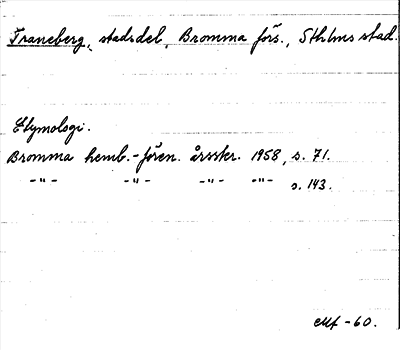 Traneberg, stadsdel, Bromma förs., Sthlms stad.
Etymologi.
Bromma hemb.-fören. årsskr. 1958, s. 71.
-"- -"- -"- -"- s. 143.
-60.